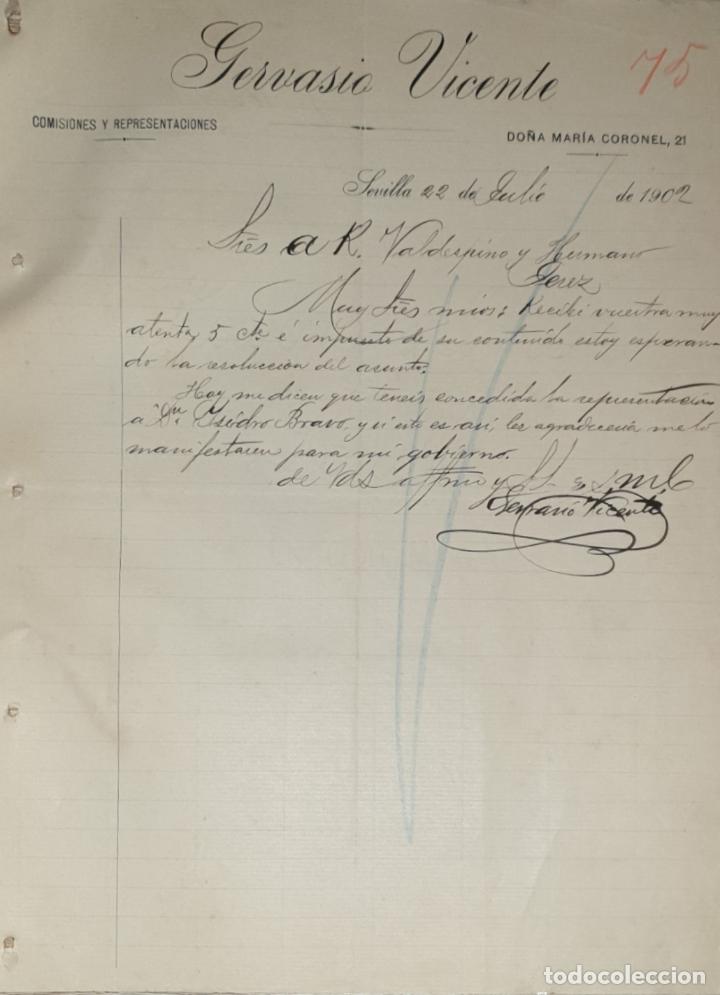 Gervasio Vicente
75
COMISIONES Y REPRESENTACIONES
DOÑA MARÍA CORONEL, 21
Sevilla 22 de Julio de 1902
Sres A R. Valdespino y Hermano
Jerez
Muy Sres mios: Recibi vuestra muy
atenta 5 cte é impuesto de su contenido estoy esperan-
do la resolucion del asunto.
Hoy me dicen que teneis concedida la representación
a Dn Isidro Bravo, y si esto es asi, les agradeceria me lo
manifestaren para mi gobierno.
de Vds affmo y S. S. q.s.m.b
Gervasio Vicente
todocoleccion